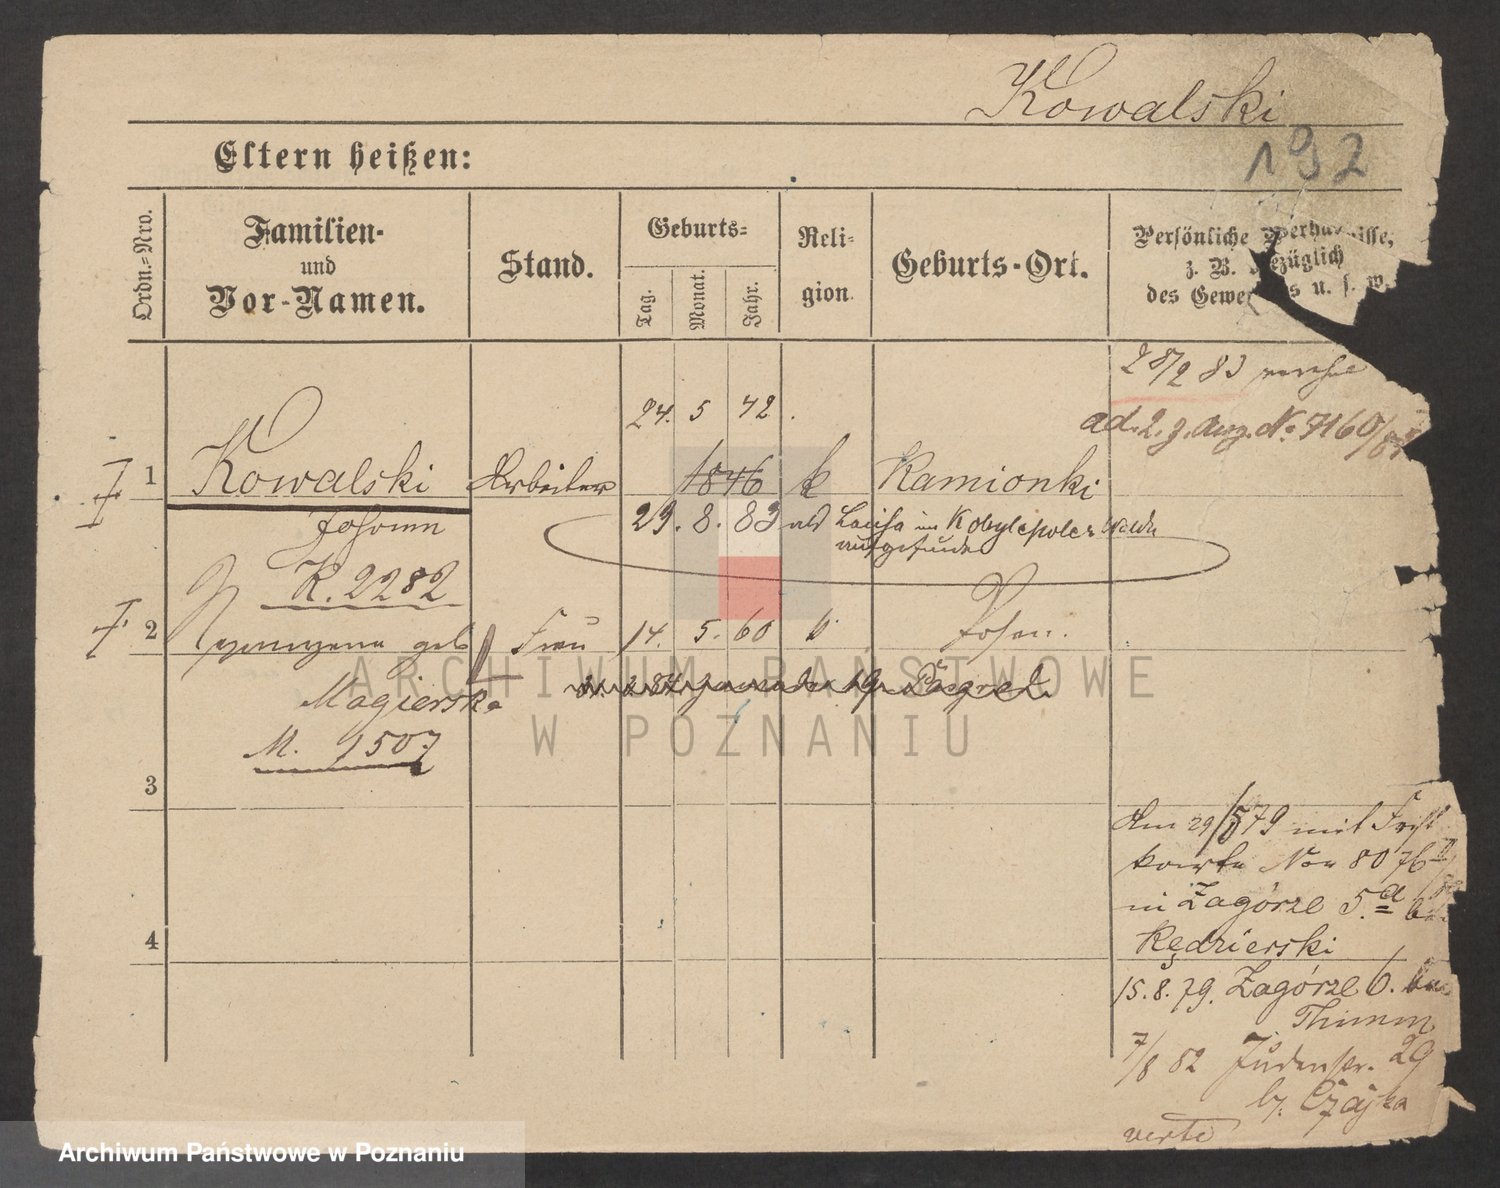 Kowalski
192
Eltern heißen:
Ordn.-Nro.
Familien-
und
Vor-Namen.
Stand.
Geburts-
Tag.
Monat.
Jahr.
Reli-
gion.
Geburts-Ort.
Persönliche
z. B. bezüglich
des u. s. w.
28/2 83
ad. 2. g. Anz. No 7160
24. 5 42
1 Kowalski Arbeiter 1846 k Kamionki
Johann 29. 8. 83 als Leiche im Kobylepoler Walde
aufgefunden
K. 2282
2 geb Frau 14. 5. 60 k. Posen.
Magierska
M. 1507
3
Am 29/5 79 mit
karte 8076
in Zagórze 5.a
4 Kędzierski
15.8.79. Zagórze 6.
Thimm
7/8 82 Judenstr. 29
b. Czajka
verte
ARCHIWUM PAŃSTWOWE
W POZNANIU
Archiwum Państwowe w Poznaniu